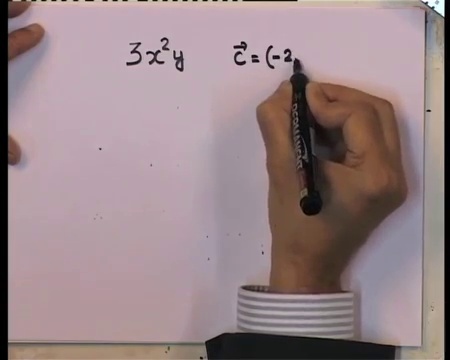 3x²y c⃗ = (-2,